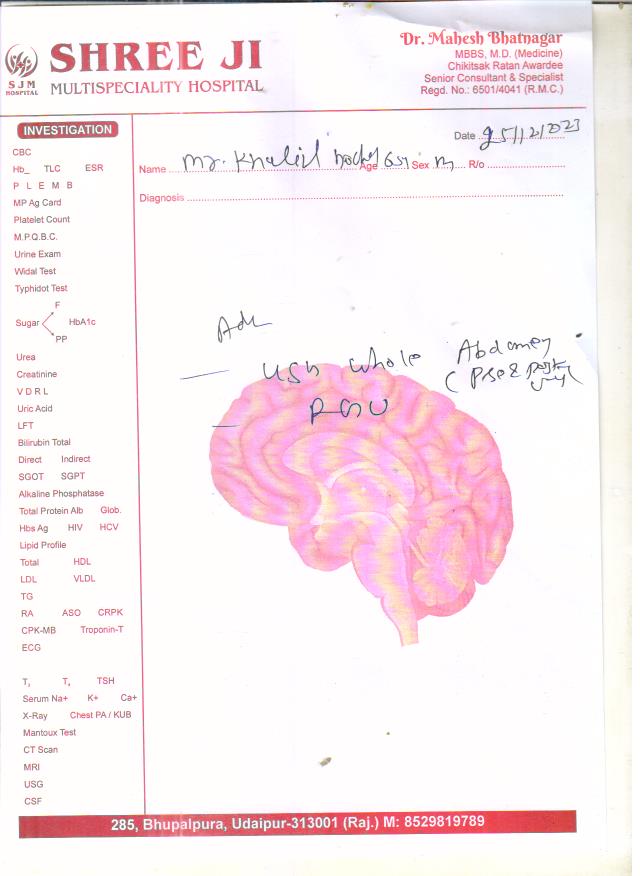 SHREE JI
MULTISPECIALITY HOSPITAL
SJM
HOSPITAL
Dr. Mahesh Bhatnagar
MBBS, M.D. (Medicine)
Chikitsak Ratan Awardee
Senior Consultant & Specialist
Regd. No.: 6501/4041 (R.M.C.)
INVESTIGATION
CBC
Hb_ TLC ESR
P L E M B
MP Ag Card
Platelet Count
M.P.Q.B.C.
Urine Exam
Widal Test
Typhidot Test
F
Sugar HbA1c
PP
Urea
Creatinine
V D R L
Uric Acid
LFT
Bilirubin Total
Direct Indirect
SGOT SGPT
Alkaline Phosphatase
Total Protein Alb Glob.
Hbs Ag HIV HCV
Lipid Profile
Total HDL
LDL VLDL
TG
RA ASO CRPK
CPK-MB Troponin-T
ECG
T3 T4 TSH
Serum Na+ K+ Ca+
X-Ray Chest PA / KUB
Mantoux Test
CT Scan
MRI
USG
CSF
Date 25/12/2023
Name Mr. Khalil Age 65y Sex M R/o
Diagnosis
Adv
USG whole Abdomen
(Pre & post
285, Bhupalpura, Udaipur-313001 (Raj.) M: 8529819789